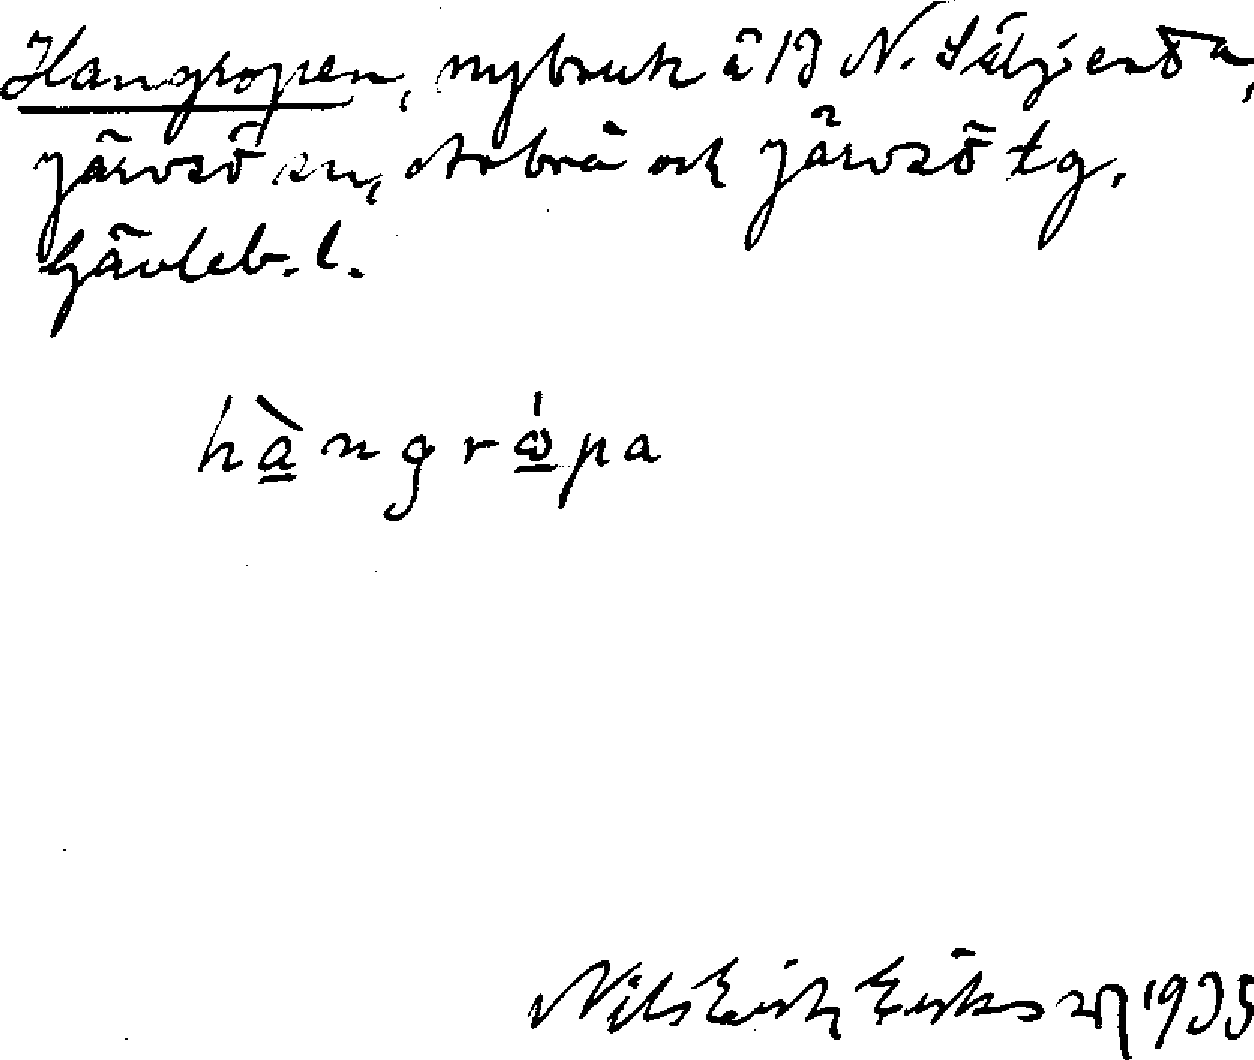 Hangropen, nybruk å 19 N. Säljesta,
Järvsö sn, Arbrå och Järvsö tg.
Gävleb. l.
hàngrópa
Nils Erik Eriksson 1935